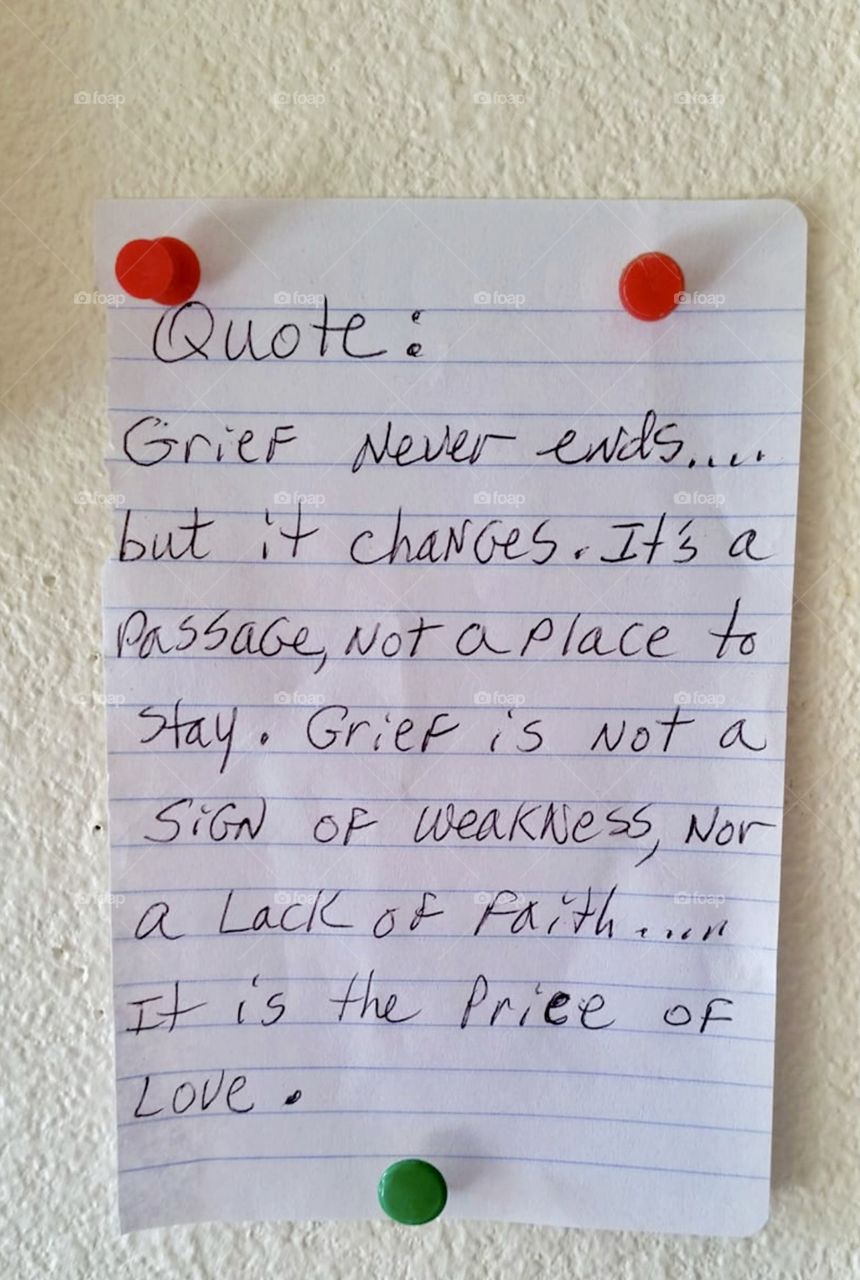 Quote:
Grief Never ends....
but it changes. It's a
Passage, Not a Place to
Stay. Grief is Not a
Sign of weakness, Nor
a Lack of Faith....
It is the Price of
Love.